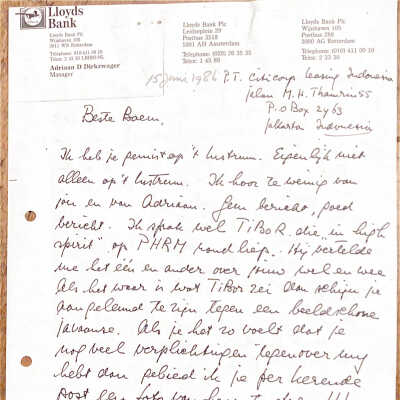 Lloyds
Bank
Lloyds Bank Plc
Wijnhaven 105
3011 WN Rotterdam
Adriaan D Dirkzwager
Manager
Lloyds Bank Plc
Leidseplein 29
Postbus 3518
1001 AH Amsterdam
Lloyds Bank Plc
Wijnhaven 105
Postbus 266
3000 AG Rotterdam
15 juni 1986 P.T. Citicorp Leasing Indonesia
Jalan M.H. Thamrin 55
P.O Box 2463
Jakarta Indonesia
Beste Boem,
Ik heb je gemist op 't lustrum. Eigenlijk niet
alleen op 't lustrum. Ik hoor te weinig van
jou en van Adriaan. Geen bericht, goed
bericht. Ik sprak wel TiBoR die "in high
spirit" op PHRM rond liep. Hij vertelde
me het één en ander over jouw wel en wee
Als het waar is wat TiBor zei dan schijn je
aangeleund te zijn tegen een beeldschone
javaanse. Als je het zo voelt dat je
nog veel verplichtingen tegenover my
hebt dan gebied ik je per kerende
post een foto van haar te